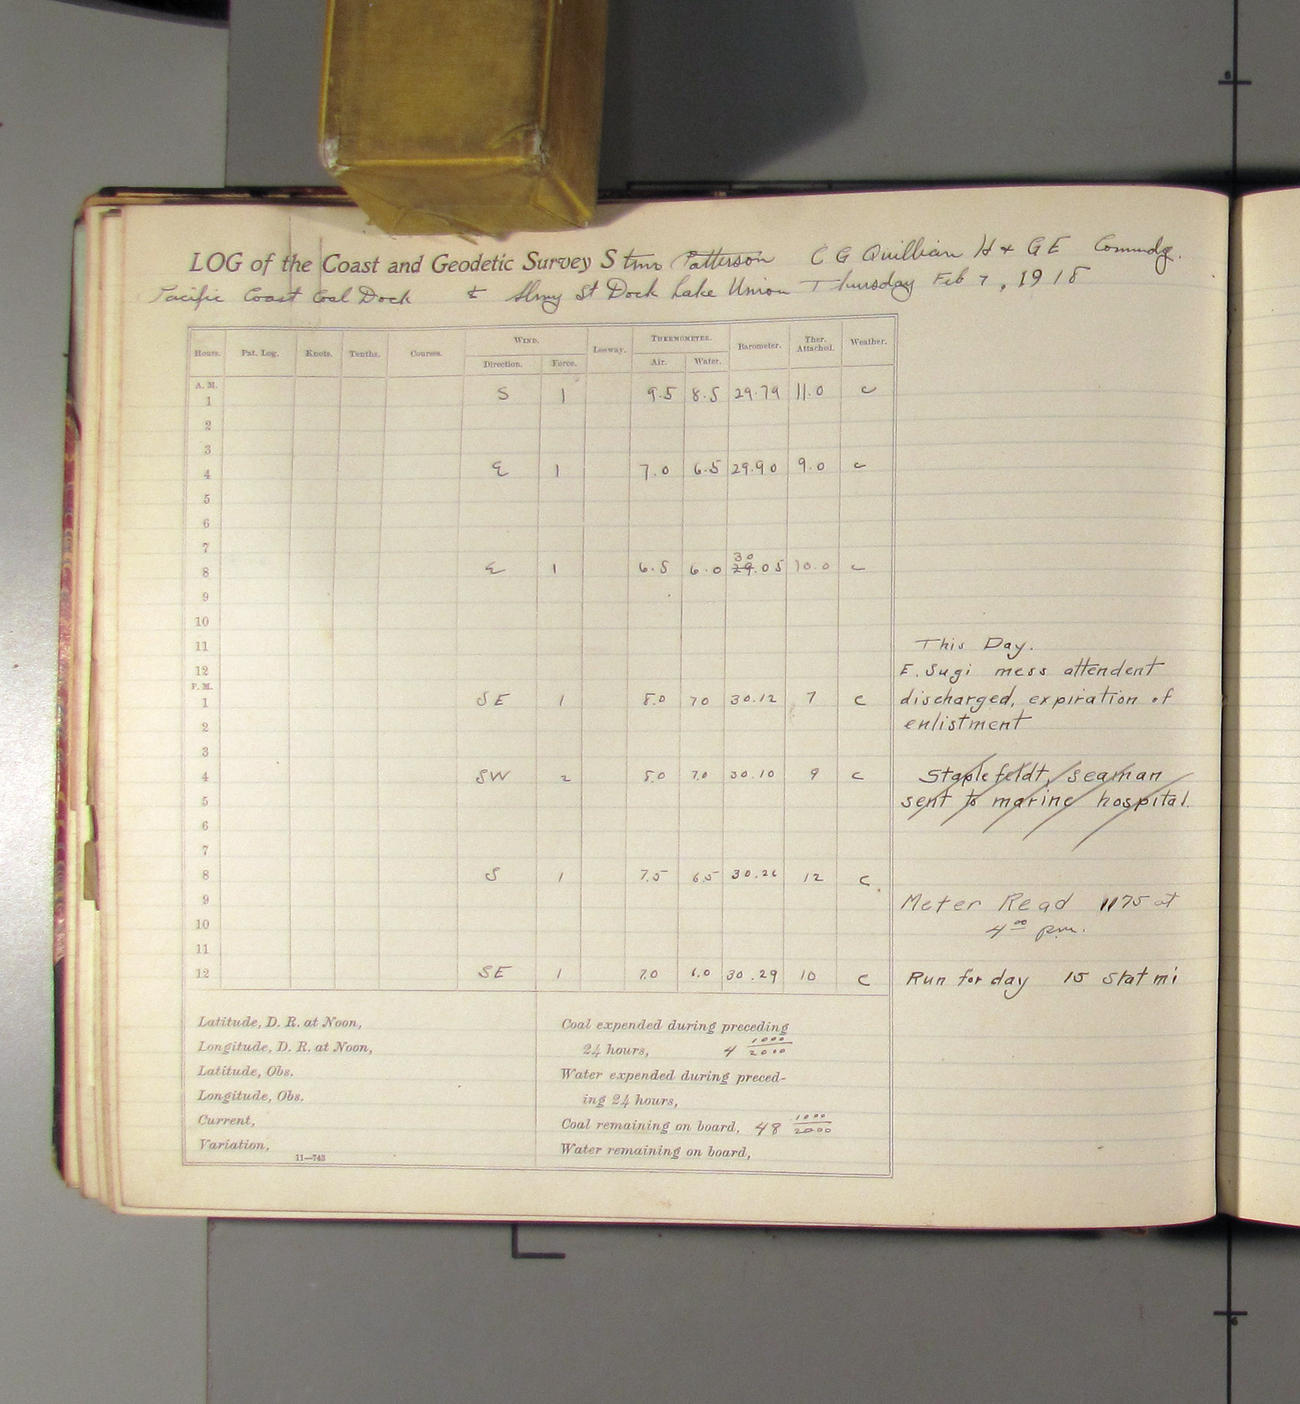 LOG of the Coast and Geodetic Survey Stmr Patterson C G Quillian H & GE Comndg.
Pacific Coast Coal Dock to St Dock Lake Union Thursday Feb 7, 1918
Hours. Pat. Log. Knots. Tenths. Courses. WIND. Leeway. THERMOMETER. Barometer. Ther. Attached. Weather.
Direction. Force. Air. Water.
A. M.
1 S 1 9.5 8.5 29.79 11.0 c
2
3
4 E 1 7.0 6.5 29.90 9.0 c
5
6
7
30
8 E 1 6.5 6.0 29.05 10.0 c
9
10
11 This Day.
12 E. Sugi mess attendent
P. M.
1 SE 1 8.0 70 30.12 7 c discharged, expiration of
2 enlistment
3
4 SW 2 8.0 7.0 30.10 9 c Staplefeldt, seaman
5 sent to marine hospital.
6
7
8 S 1 7.5 6.5 30.26 12 c.
9 Meter Read 1175 at
10 4 00 pm.
11
12 SE 1 7.0 6.0 30.29 10 c Run for day 15 Stat mi
Latitude, D. R. at Noon,
Longitude, D. R. at Noon,
Latitude, Obs.
Longitude, Obs.
Current,
Variation,
11—743
Coal expended during preceding
24 hours, 4 1000/2000
Water expended during preced-
ing 24 hours,
Coal remaining on board, 48 1000/2000
Water remaining on board,
6
6